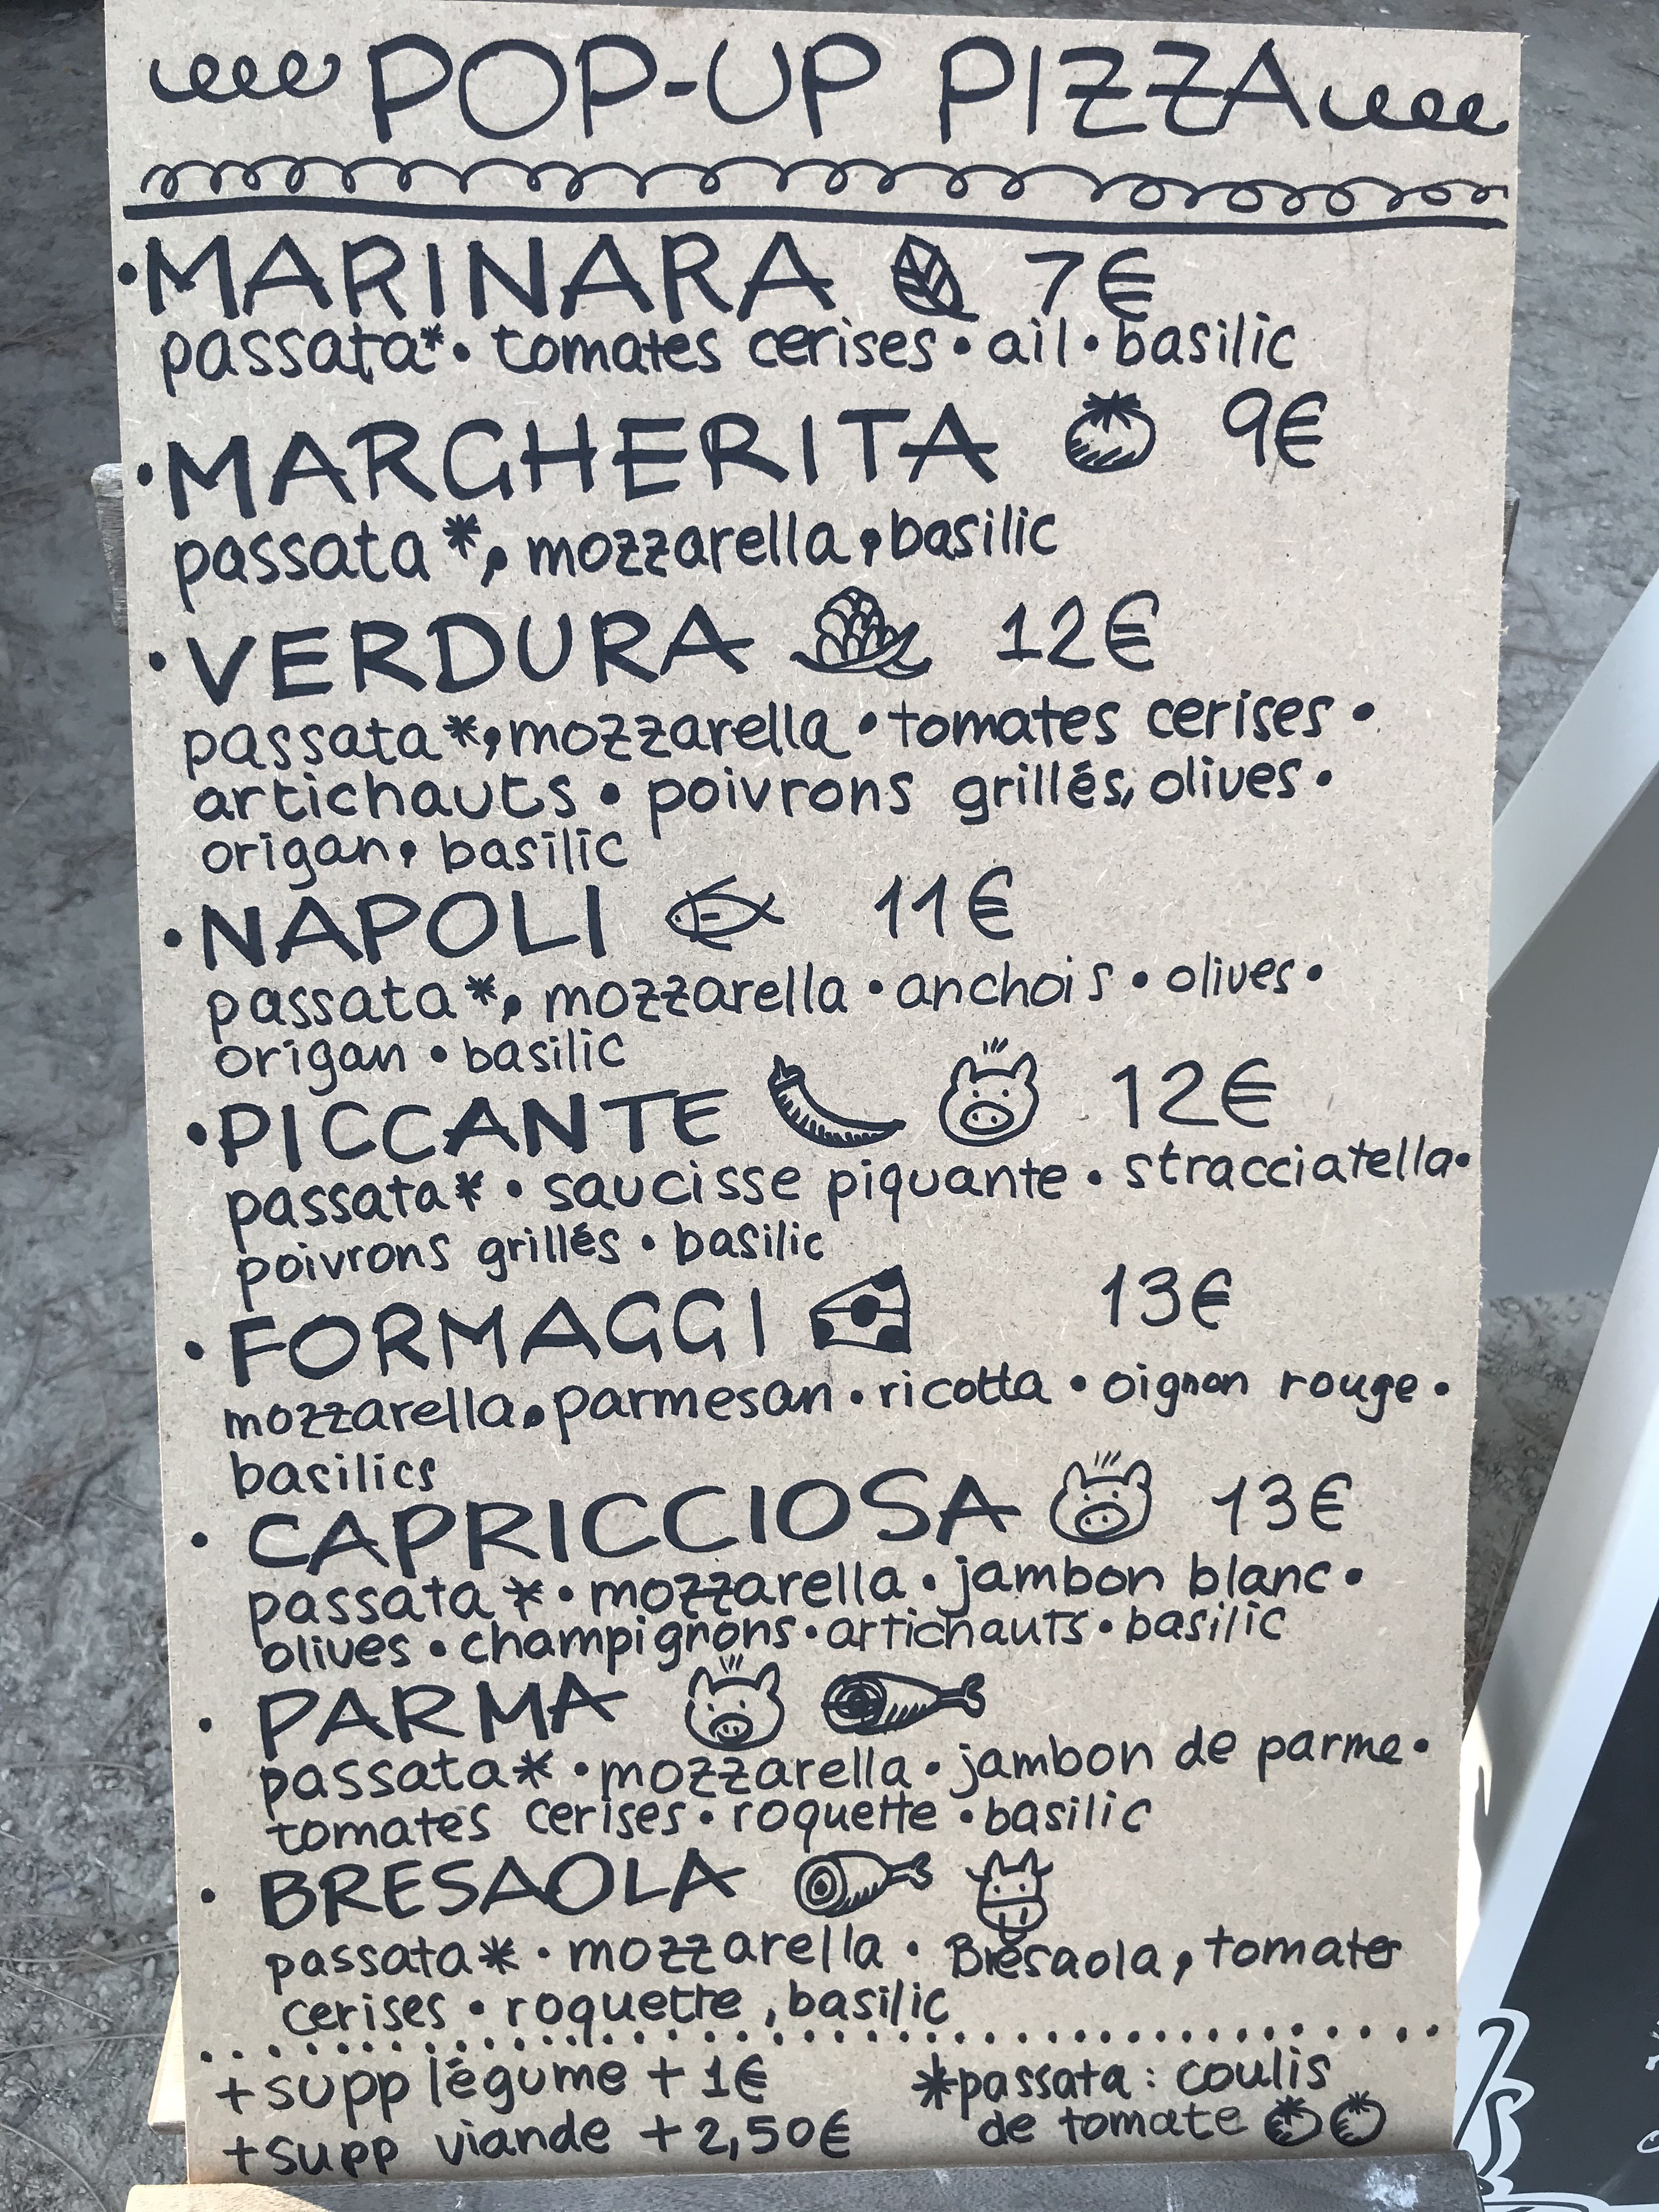 POP-UP PIZZA
•MARINARA 7€
passata*• tomates cerises • ail • basilic
•MARGHERITA 9€
passata*, mozzarella, basilic
•VERDURA 12€
passata*, mozzarella • tomates cerises •
artichauts • poivrons grillés, olives •
origan, basilic
•NAPOLI 11€
passata*, mozzarella • anchois • olives •
origan • basilic
•PICCANTE 12€
passata* • saucisse piquante • stracciatella•
poivrons grillés • basilic
•FORMAGGI 13€
mozzarella•parmesan • ricotta • oignon rouge •
basilics
• CAPRICCIOSA 13€
passata* • mozzarella • jambon blanc •
olives • champignons • artichauts • basilic
• PARMA
passata* • mozzarella • jambon de parme •
tomates cerises • roquette • basilic
• BRESAOLA
passata* • mozzarella • Bresaola, tomates
cerises • roquette, basilic
+supp légume + 1€
+supp viande + 2,50€
*passata : coulis
de tomate